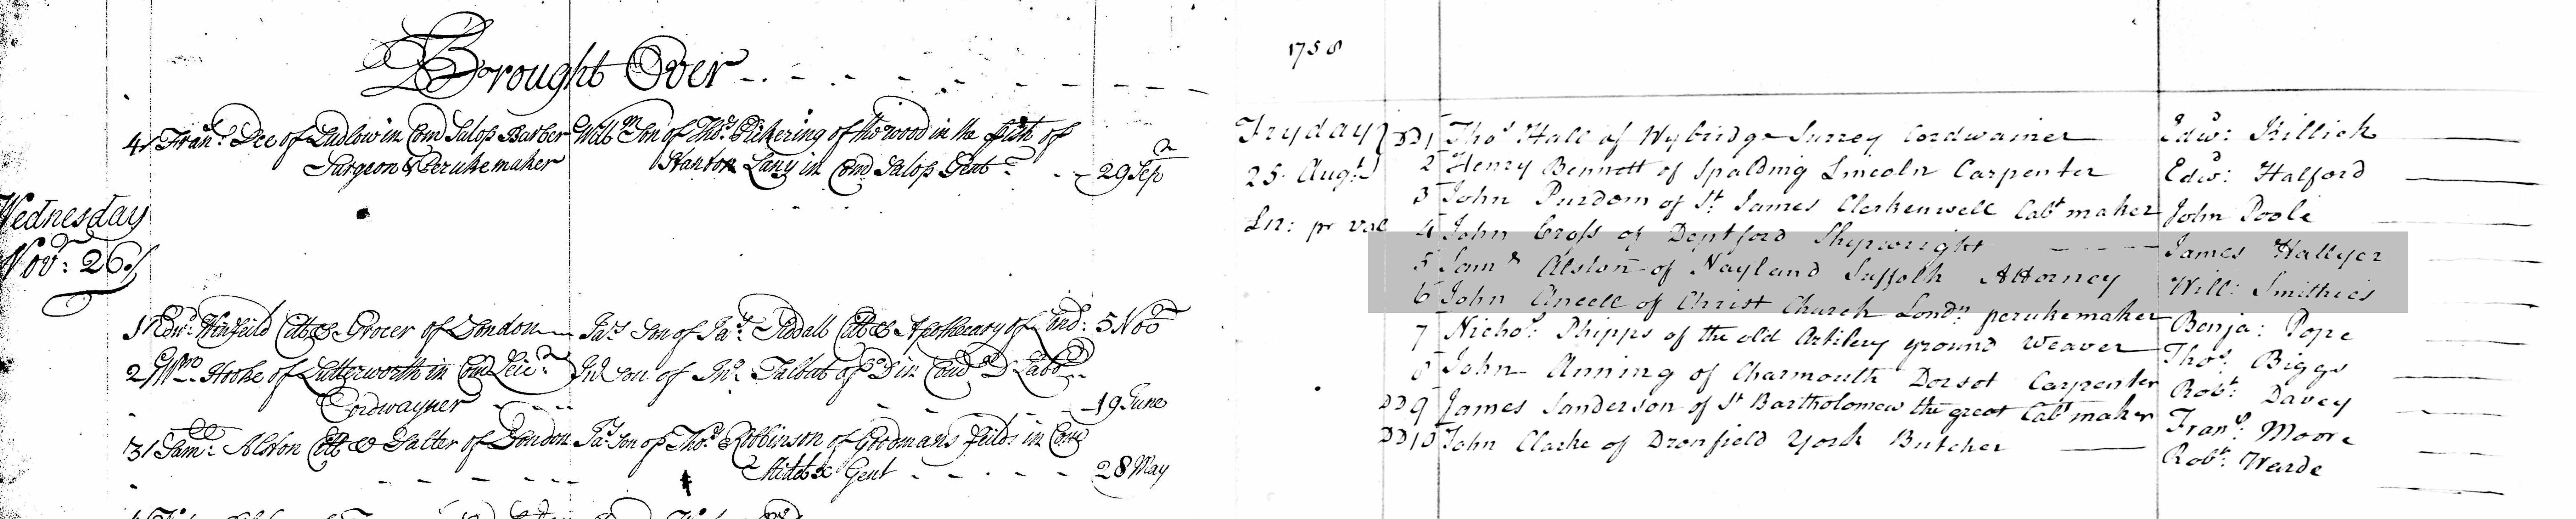 Brought Over
41 Fran.s Dee of Ludlow in Com Salop Barber Will.m Son of Tho.s Pickering of in the p̃ish of
Surgeon & Perukemaker Stanton Lacy in Com Salop Gent 29 Sep
Wednesday
Nov: 26
1 Edw: Winfeild Citt & Grocer of London Ja.s Son of Ja.s Siddall Citt & Apothecary of Lond: 5 Nov
2 Hooke of Lutterworth in Com Leic Jn.o Son of Jn.o Talbut of D in Com D Lab
Cordwayner 19 June
3 Sam: Alston Citt & Salter of London Ja.s Son of Tho.s Robbinson of Goodmans feilds in Com
Middx Gent 28 May
1758
Fryday DD 1 Tho.s Hall of Wybridge Surrey Cordwainer Edw.d: Killick
25. Aug.t 2 Henry Bennett of Spalding Lincoln Carpenter Edw.d: Halford
3 John Purdom of S.t James Clerkenwell Cab.t maker John Poole
pr 4 John Cross of Deptford Shipwright James Hallyer
5 Sam.l Alston of Nayland Suffolk Attorney Will: Smithies
6 John Ancell of Christ Church Lond.n perukemaker Benja: Pope
7 Nicho.s: Phipps of the old Artilery ground Weaver Tho.s: Biggs
8 John Anning of Charmouth Dorset Carpenter Rob.t: Davey
DD 9 James Sanderson of S.t Bartholomew the great Cab.t maker Fran.s: Moore
DD 10 John Clarke of Dronfield York Butcher Rob.t: Warde